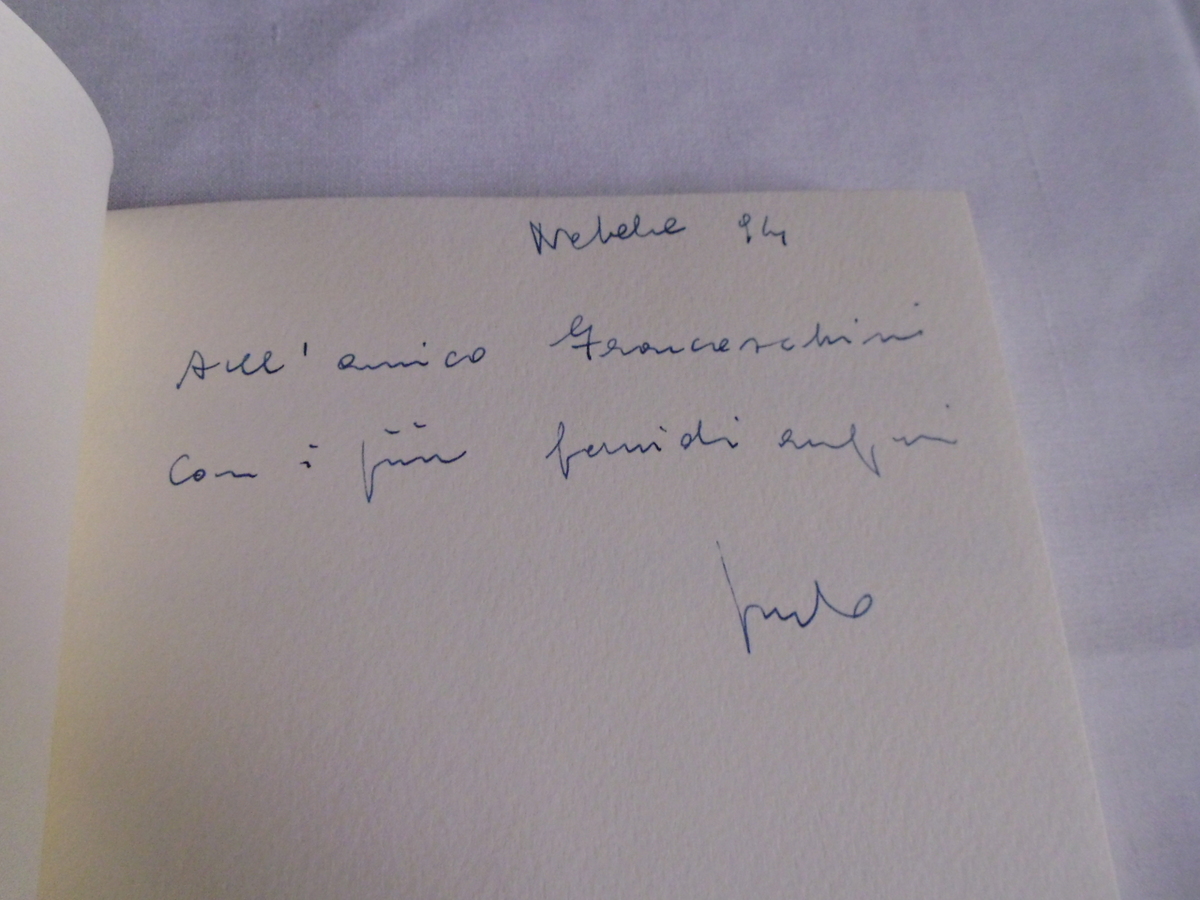 Natale 94
All'amico Franceschini
Con i più fervidi auguri